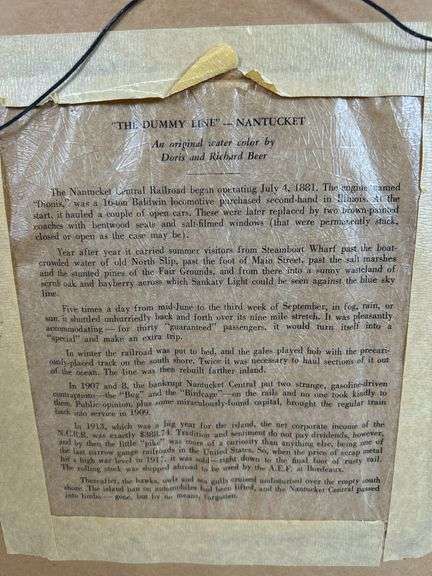 "THE DUMMY LINE" — NANTUCKET
An original water color by
Doris and Richard Beer
The Nantucket Central Railroad began operating July 4, 1881. The engine named
"Dionis," was a 16-ton Baldwin locomotive purchased second-hand in Illinois. At the
start, it hauled a couple of open cars. These were later replaced by two brown-painted
coaches with bentwood seats and salt-filmed windows (that were permanently stuck,
closed or open as the case may be).
Year after year it carried summer visitors from Steamboat Wharf past the boat-
crowded water of old North Slip, past the foot of Main Street, past the salt marshes
and the stunted pines of the Fair Grounds, and from there into a sunny wasteland of
scrub oak and bayberry across which Sankaty Light could be seen against the blue sky
line.
Five times a day from mid-June to the third week of September, in fog, rain, or
sun, it shuttled unhurriedly back and forth over its nine mile stretch. It was pleasantly
accommodating — for thirty "guaranteed" passengers, it would turn itself into a
"special" and make an extra trip.
In winter the railroad was put to bed, and the gales played hob with the precari-
ously-placed track on the south shore. Twice it was necessary to haul sections of it out
of the ocean. The line was then rebuilt farther inland.
In 1907 and 8, the bankrupt Nantucket Central put two strange, gasoline-driven
contraptions — the "Bug" and the "Birdcage" — on the rails and no one took kindly to
them. Public opinion, plus some miraculously-found capital, brought the regular train
back into service in 1909.
In 1913, which was a big year for the island, the net corporate income of the
N.C.R.R. was exactly Tradition and sentiment do not pay dividends, however,
and by then the little "pike" was more of a curiosity than anything else, being one of
the last narrow gauge railroads in the United States. So, when the price of scrap metal
hit a high war level in 1917, it was sold — right down to the final foot of rusty rail.
The rolling stock was shipped abroad to be used by the A.E.F. at Bordeaux.
Thereafter, the hawks, owls and sea gulls cruised undisturbed over the empty south
shore. The island ban on automobiles had been lifted, and the Nantucket Central passed
into limbo — gone, but by no means forgotten.